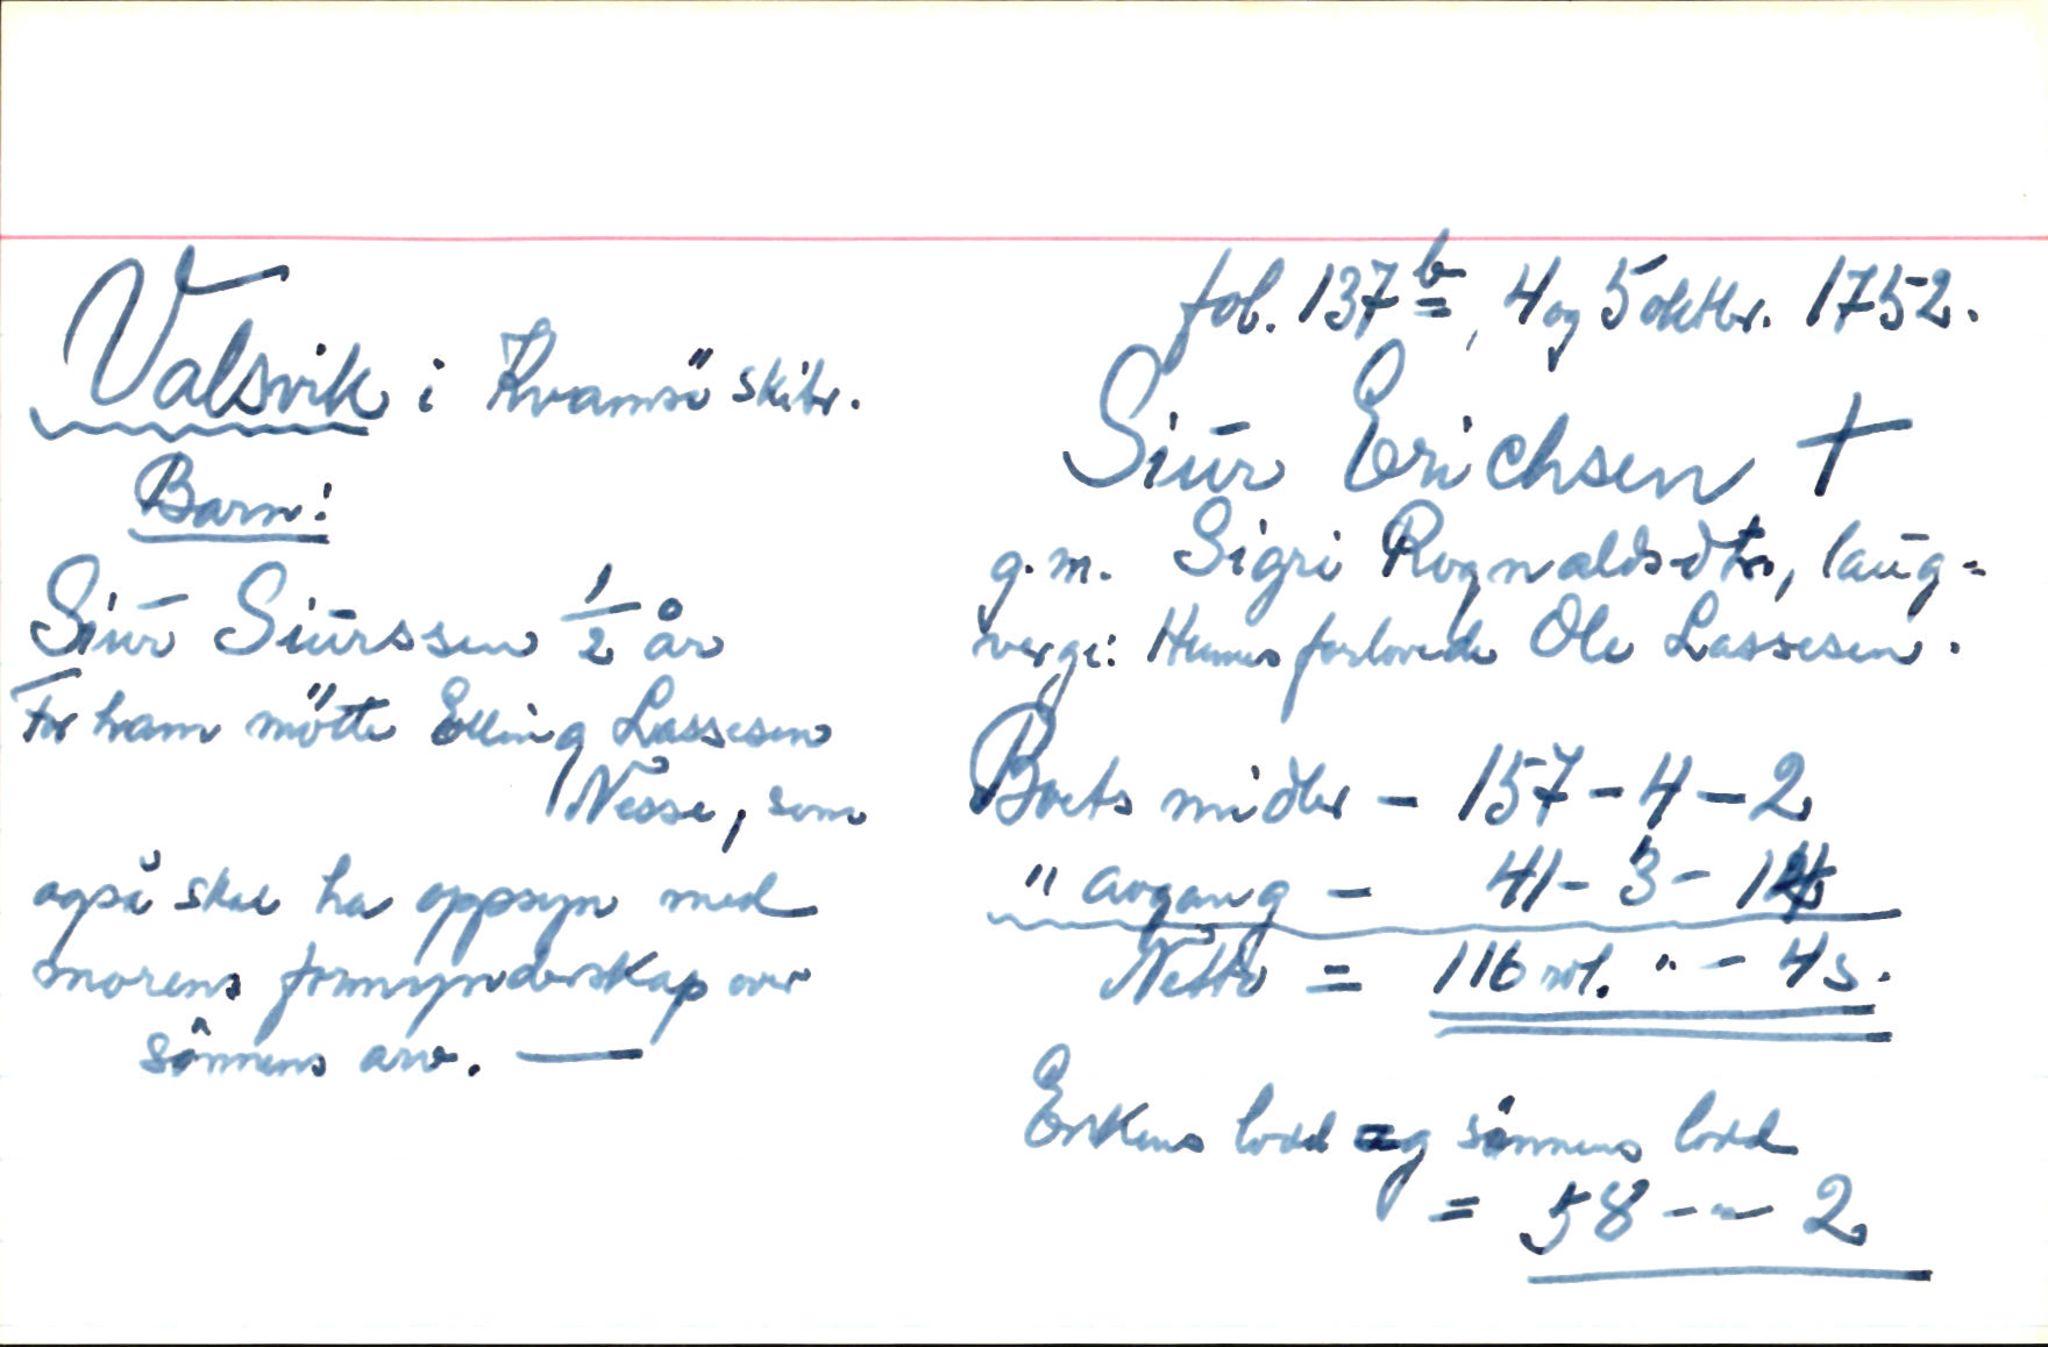 Valsvik i Kvamsö skibr.
Barn:
Siūr Siūrssen 1/2 år
For ham mötte Elling Lassesen
Nesse, som
også skal ha oppsyn med
morens formynderskap over
sönnens arv. —
fol. 137b, 4 og 5 oktbr. 1752.
Siūr Erichsen †
g.m. Sigri Rognaldsdtr, laug-
verge: Hennes forlovede Ole Lassesen.
Boets midler - 157-4-2
" avgang - 41-3-14
Netto = 116 rd. " - 4 s.
Enkens lodd og sönnens lodd
= 58 - " - 2